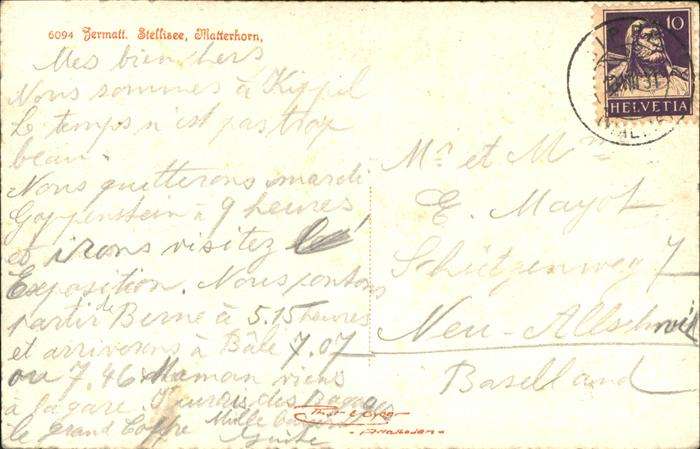 6094 Zermatt. Stellisee, Matterhorn,
10
HELVETIA
Mes bien chers
Nous sommes à Kippel
Le temps n'est pas trop
beau.
Nous quitterons mardi
Goppenstein à 9 heures
et irons visiter
Exposition. Nous
partir de Berne à 5.15 heures
et arriverons à Bâle 7.07
ou 7.46 Maman viens
à la gare. des Bagages
le grand Mille
Mr et Mme
E. Mayot
Schützenweg 7
Neu-Allschwil
Baselland